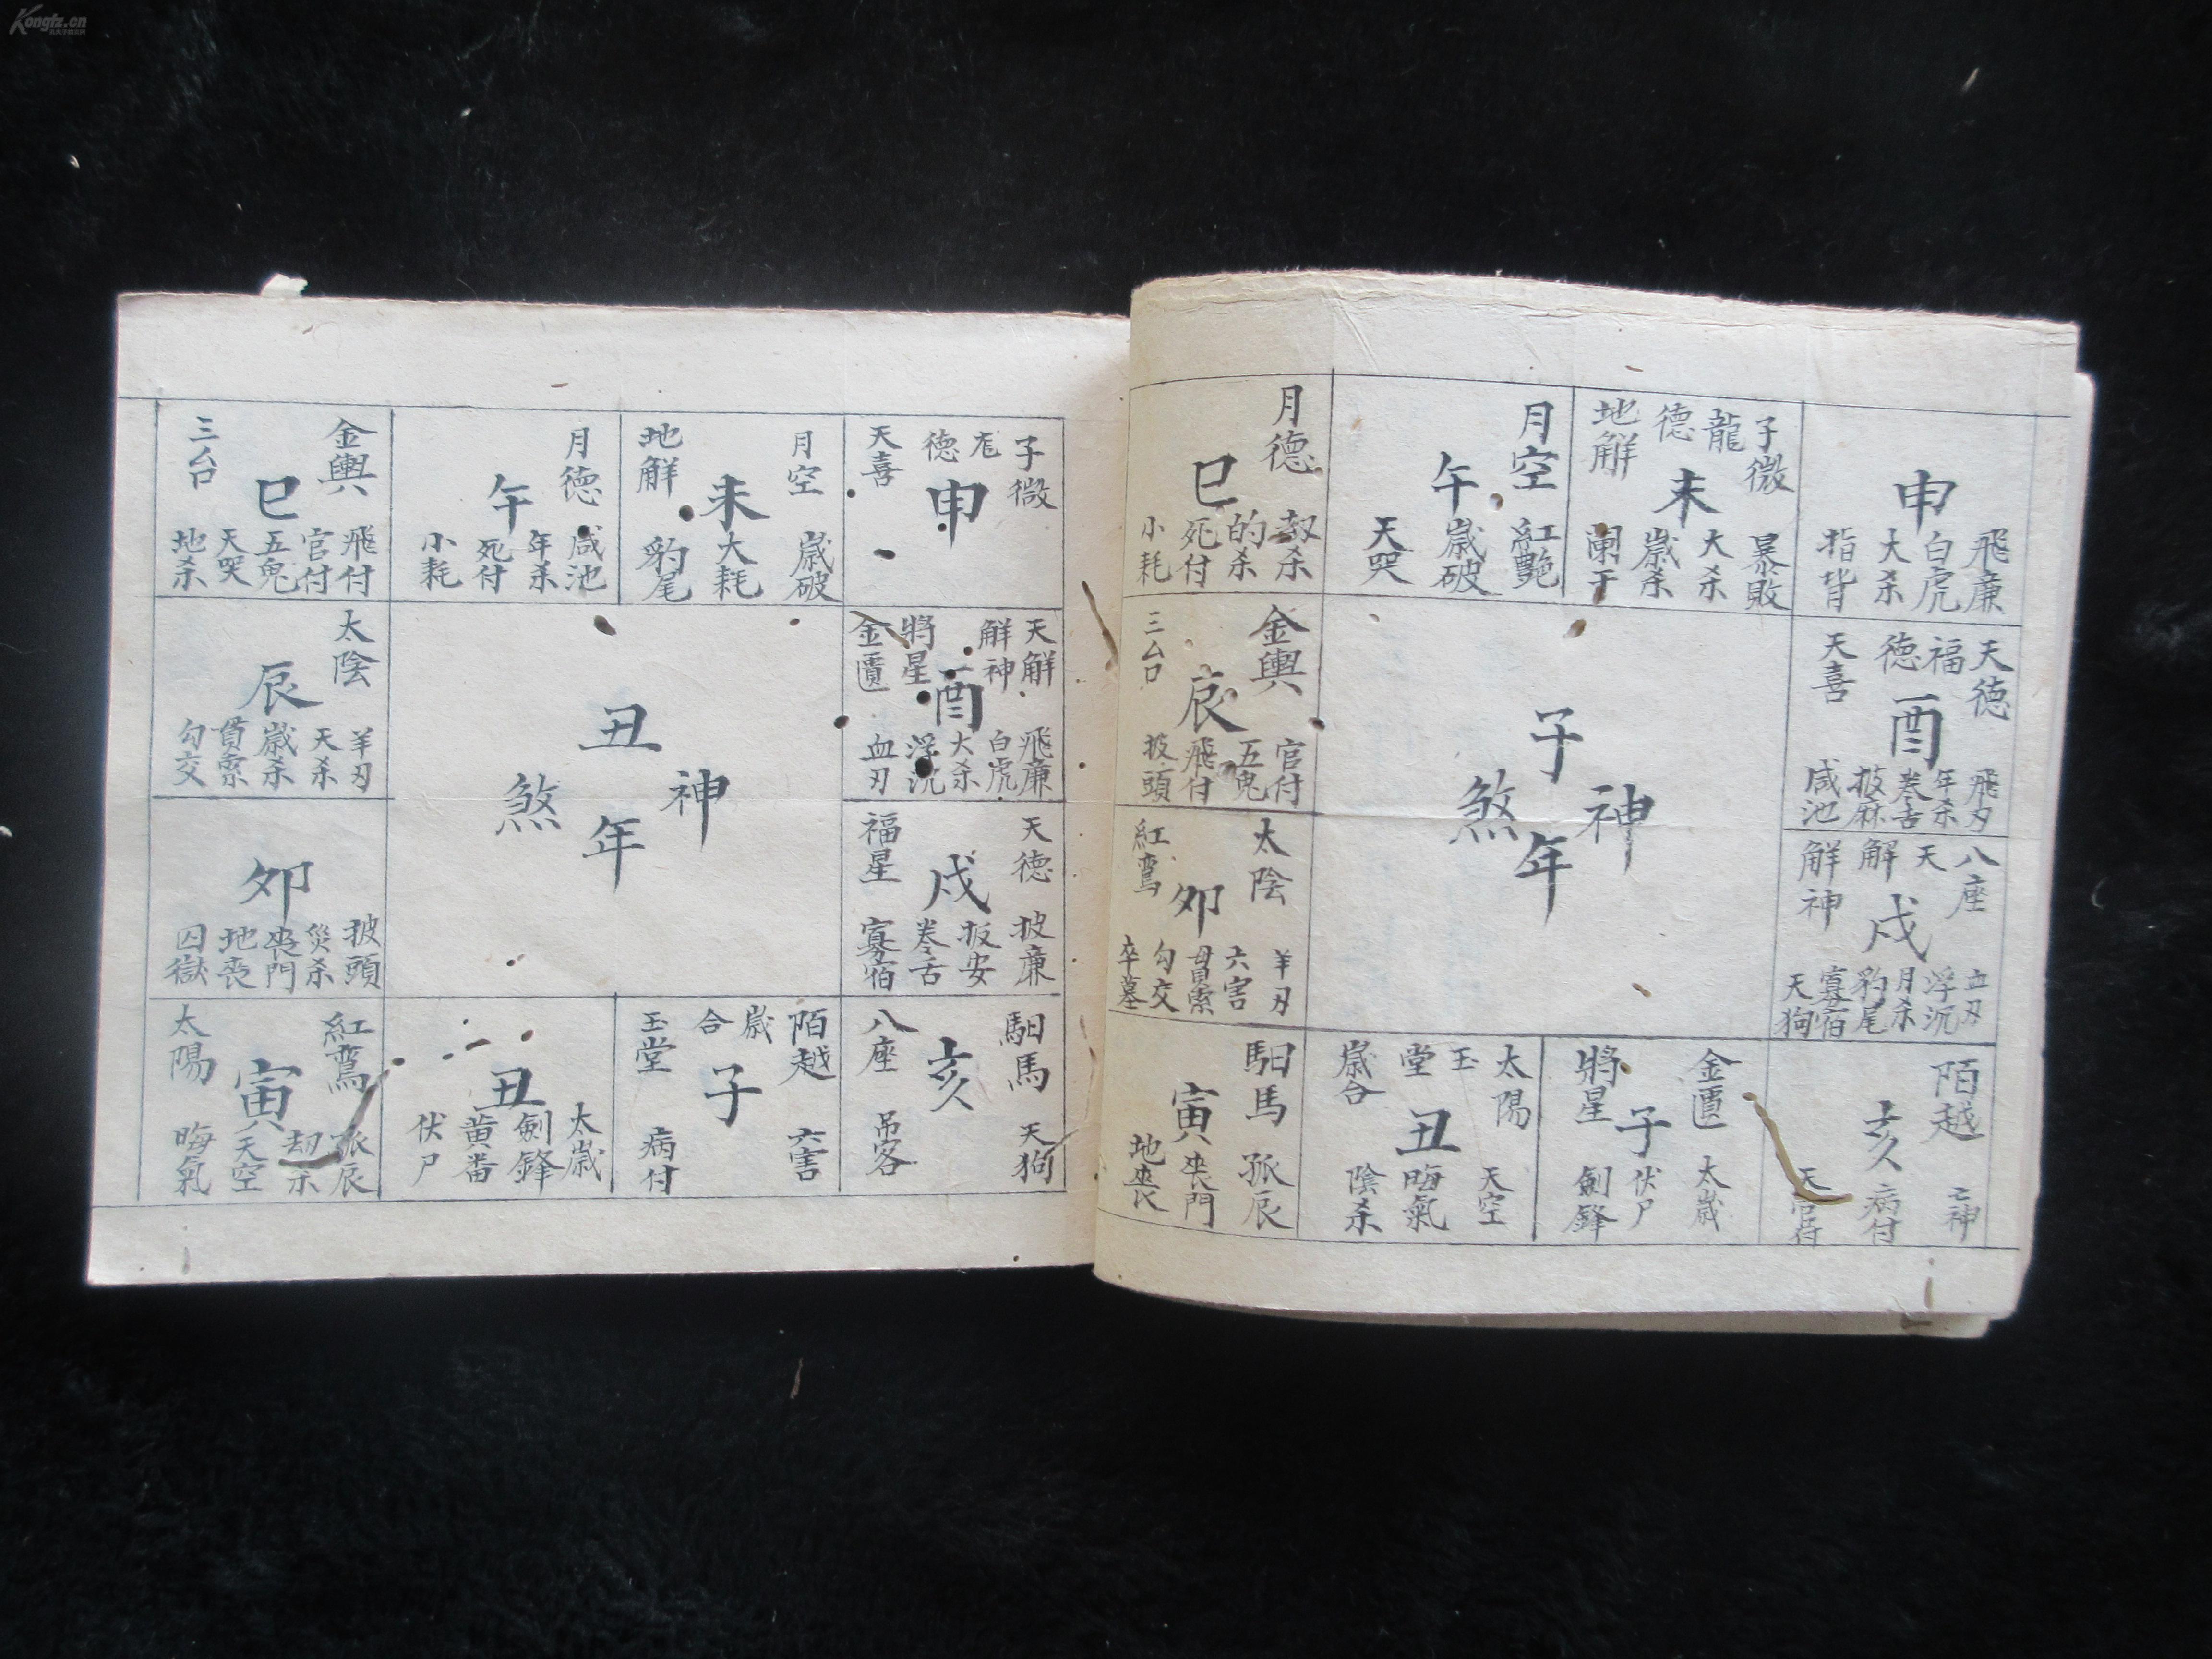 Kongfz.cn
子年神煞
申
飛廉
白虎
大杀
指背
子微
龍德
地解
未
暴敗
大杀
歲杀
闌干
月空
午
紅艷
歲破
天哭
月德
巳
劫杀
的杀
死付
小耗
天德
福德
天喜
酉
飛刃
年杀
卷舌
披麻
咸池
金輿
三台
辰
官付
五鬼
飛付
披頭
八座
天解
解神
戌
血刃
浮沉
月杀
豹尾
寡宿
天狗
太陰
紅鸞
卯
羊刃
六害
貫索
勾交
卒墓
陌越
亥
亡神
病付
天官符
金匱
將星
子
太歲
伏尸
劍鋒
太陽
玉堂
歲合
丑
天空
晦氣
陰杀
馹馬
寅
孤辰
丧門
地丧
丑年神煞
子微
德
天喜
申
月空
地解
未
歲破
大耗
豹尾
月德
午
咸池
年杀
死付
小耗
金輿
三台
巳
飛付
官付
五鬼
天哭
地杀
天解
解神
將星
金匱
酉
飛廉
白虎
大杀
浮沉
血刃
太陰
辰
羊刃
天杀
歲杀
貫索
勾交
天德
福星
戌
披廉
扳安
卷舌
寡宿
卯
披頭
災杀
丧門
地丧
囚獄
馹馬
八座
亥
天狗
吊客
陌越
歲合
玉堂
子
六害
病付
丑
太歲
劍鋒
黄番
伏尸
紅鸞
太陽
寅
孤辰
劫杀
天空
晦氣